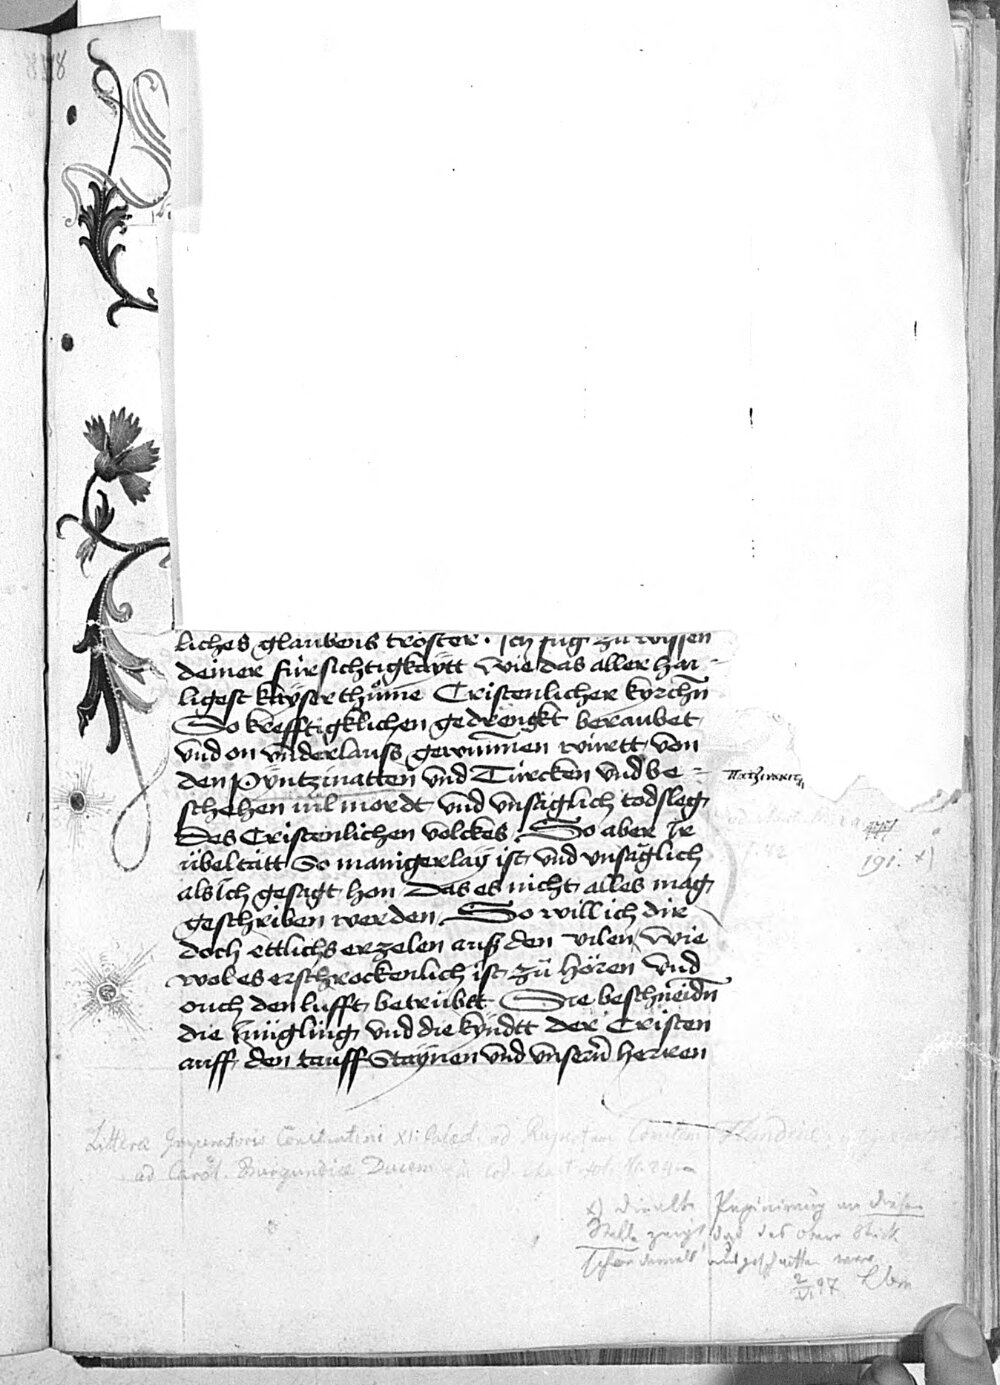 liches glaubens tröster. Ich fug zu wissen
deiner fürsichtigkaytt wie das aller hai-
ligest kayserthume Cristenlicher kyrchn̄
So krefftigklichen gedrengkt beraubet
vnd on vnderlauss gewunnen wirett von
den Pyntzinatten vnd Türcken vnd be=
schehen uil mordt vnd vnsäglich todsleg
Des Cristenlichen volckes So aber Ir
übeltätt So manigerlay ist vnd vnsäglich
als Ich gesagt hon Das es nicht alles mag
geschriben werden So will ich dir
doch ettlichs erzelen auß den vilen wie
wol es erschrockenlich ist zů hören vnd
ouch den lufft betrübtt Sie beschneidn̄
die Jungling vnd die kyndtt der Cristen
auff den tauff Staynen vnd vnsern̄ herren
191. x)
Litterae Imperatoris Constantini XI. Palaeol. ad Rupertum Comitem Flandriae
ad Carol. Burgundiae Ducem in Cod. chart. fol.
x) Die alte Paginirung an dieser
Stelle zeigt, daß das obere Stück
schon damals ausgeschnitten war.
97